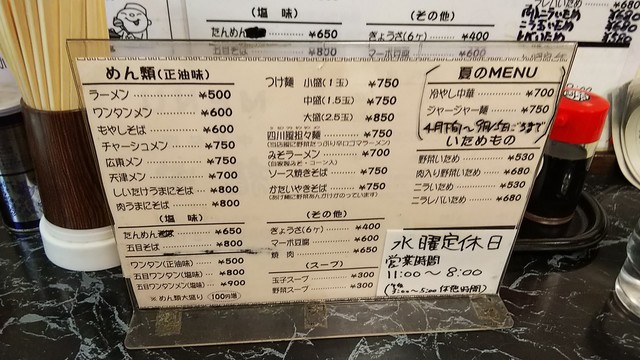 (塩味)
たんめん ¥650
五目そば ¥800
(その他)
ぎょうざ(6ヶ) ¥400
マーボ豆腐 ¥600
めん類(正油味)
ラーメン ¥500
ワンタンメン ¥600
もやしそば ¥600
チャーシューメン ¥750
広東メン ¥750
天津メン ¥700
しいたけうまにそば ¥800
肉うまにそば ¥800
(塩味)
たんめん ¥650
五目そば ¥800
ワンタン(正油味) ¥500
五目ワンタン(塩味) ¥800
五目ワンタンメン(塩味) ¥900
※めん類大盛り 100円増
つけ麺 小盛(1玉) ¥750
中盛(1.5玉) ¥750
大盛(2.5玉) ¥850
四川風担々麺 ¥750
みそラーメン ¥700
ソース焼きそば ¥750
かたいやきそば ¥750
(その他)
ぎょうざ(6ヶ) ¥400
マーボ豆腐 ¥600
焼肉 ¥650
(スープ)
玉子スープ ¥300
野菜スープ ¥300
夏のMENU
冷やし中華 ¥700
ジャージャー麺 ¥750
いためもの
野菜いため ¥530
肉入り野菜いため ¥680
ニラいため ¥530
ニラレバいため ¥680
水曜定休日
営業時間
11:00〜8:00